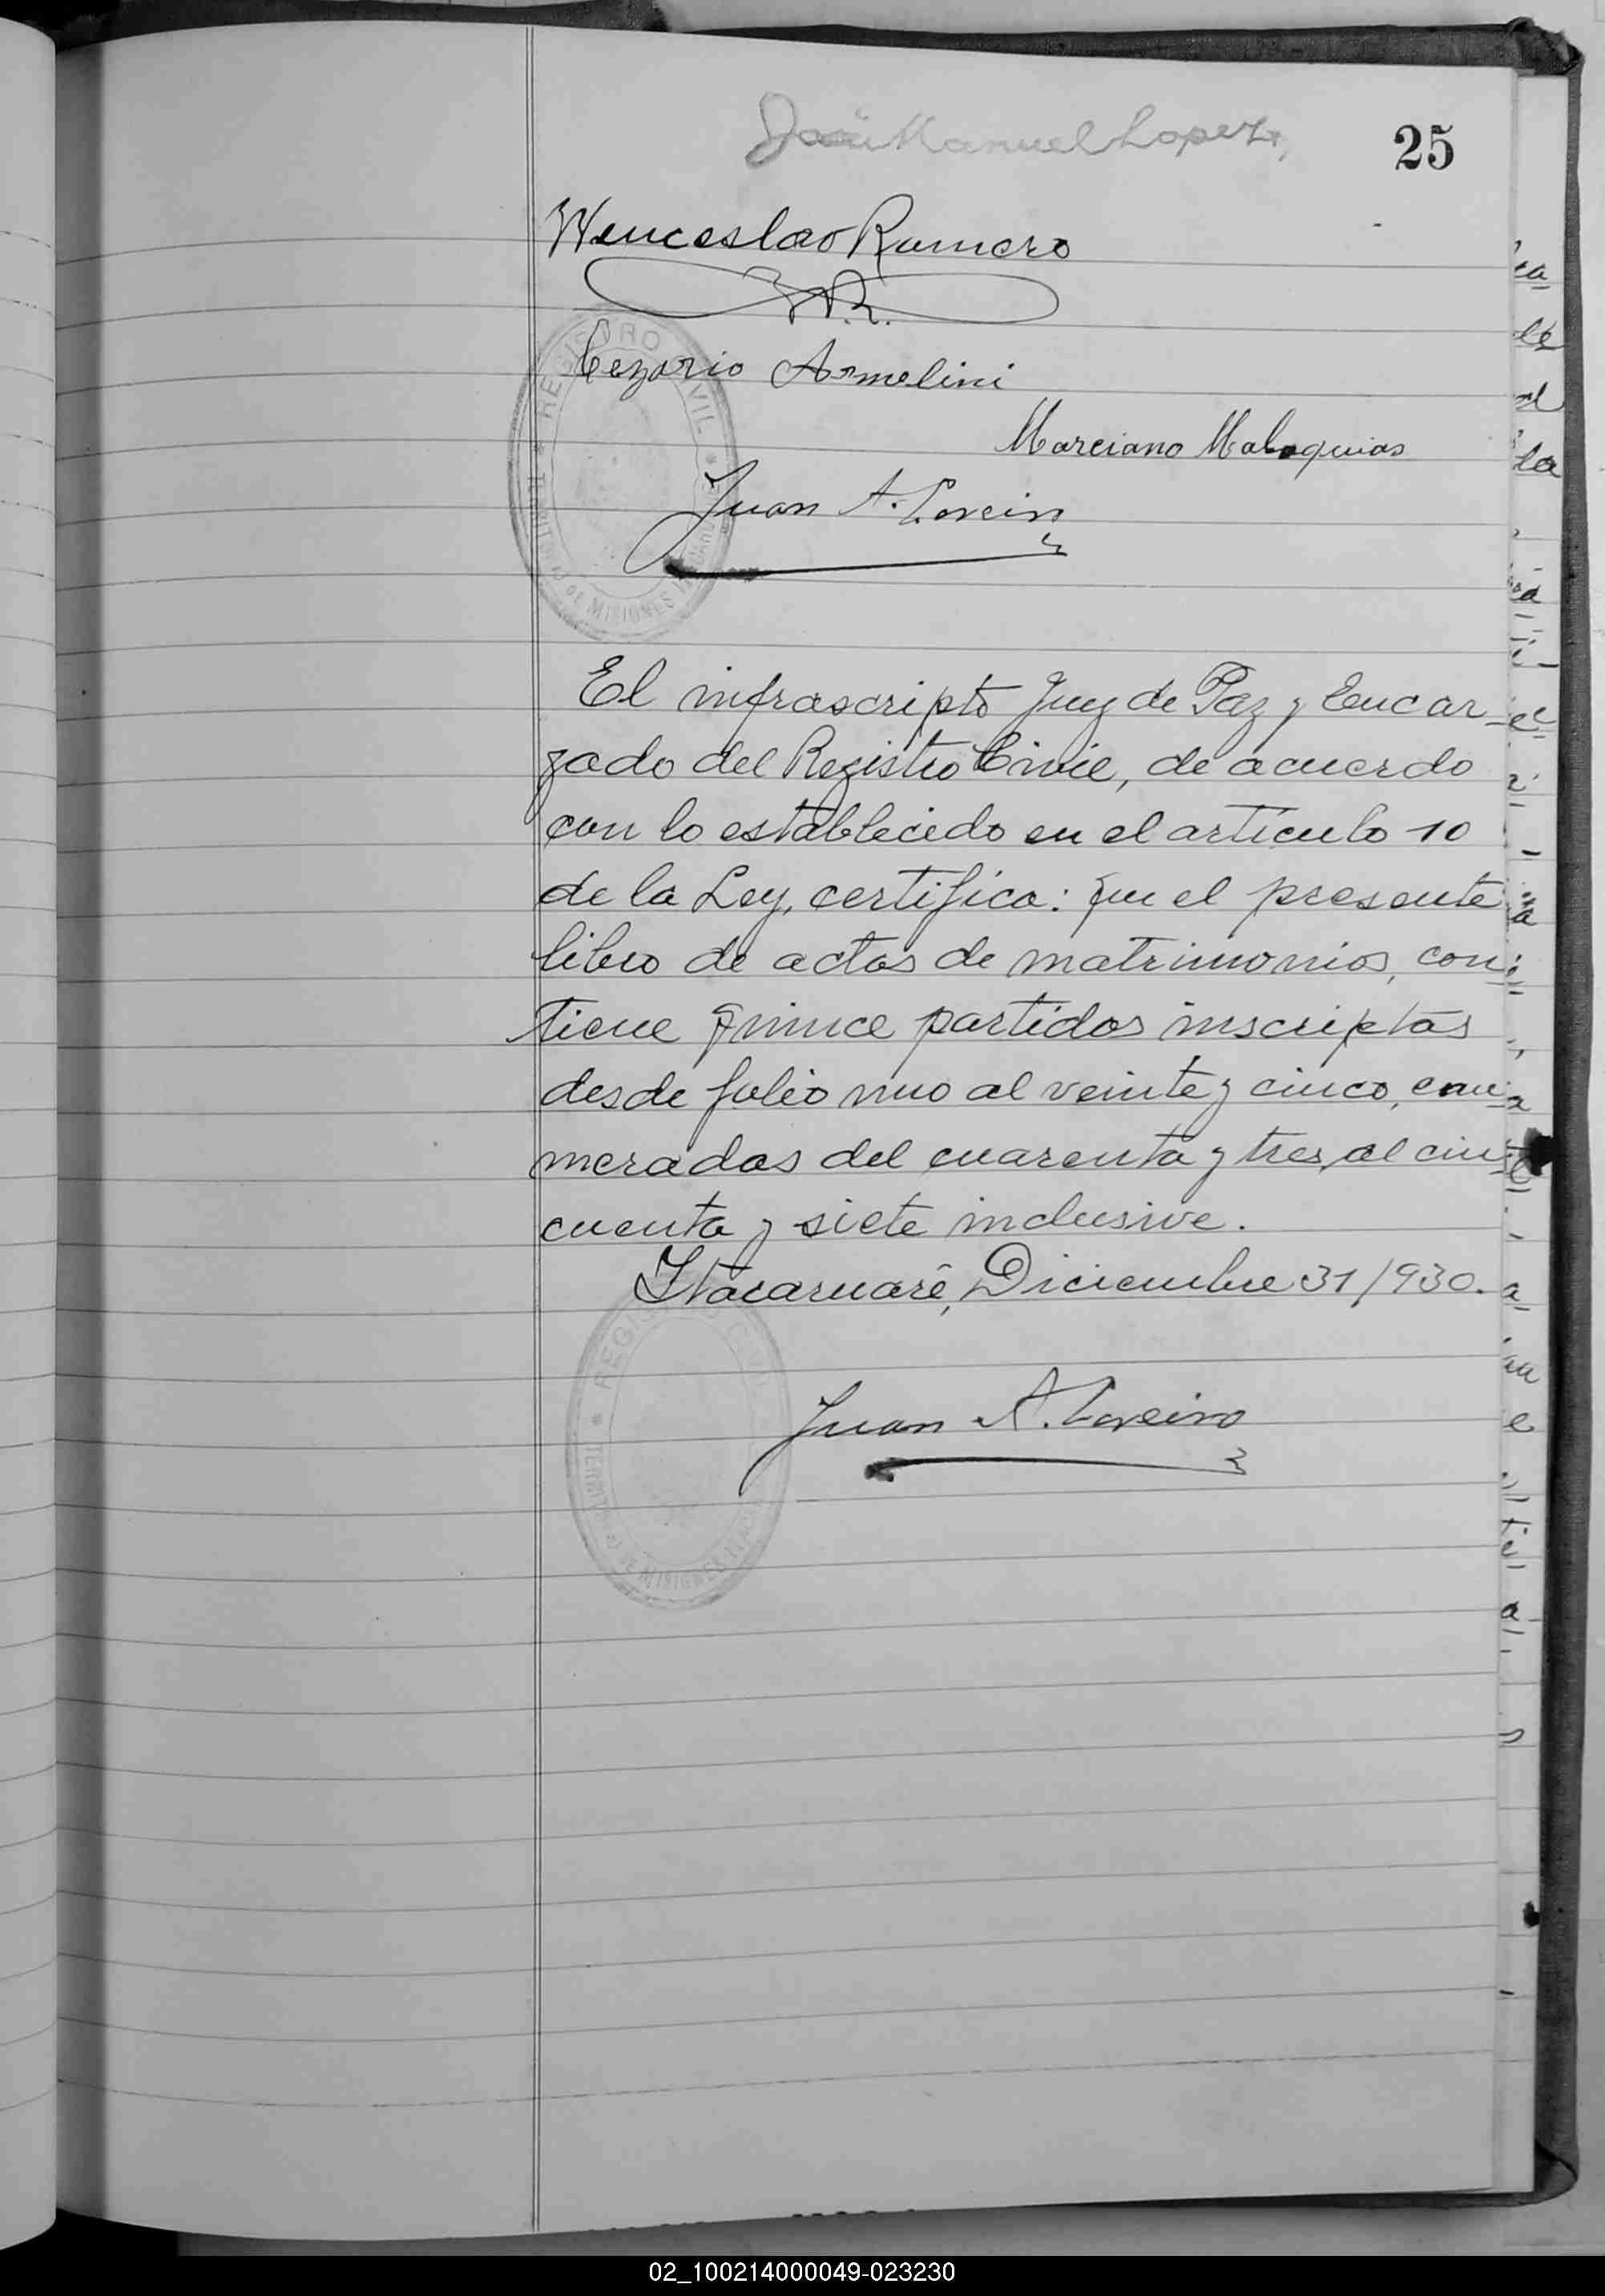 José Manuel Lopez,
25
Wenceslao Romero
W.R.
Cezario Armelini
Marciano Malaquias
Juan A. Loveiro
REGISTRO CIVIL
DE MISIONES
El infrascripto Juez de Paz y Encar-
gado del Registro Civil, de acuerdo
con lo establecido en el artículo 10
de la Ley, certifica: que el presente
libro de actas de matrimonios, con-
tiene quince partidas inscriptas
desde folio uno al veinte y cinco, enu-
meradas del cuarenta y tres al cin-
cuenta y siete inclusive.
Itacaruaré, Diciembre 31/930.
Juan A. Loveiro
REGISTRO CIVIL
DE MISIONES
02_100214000049-023230